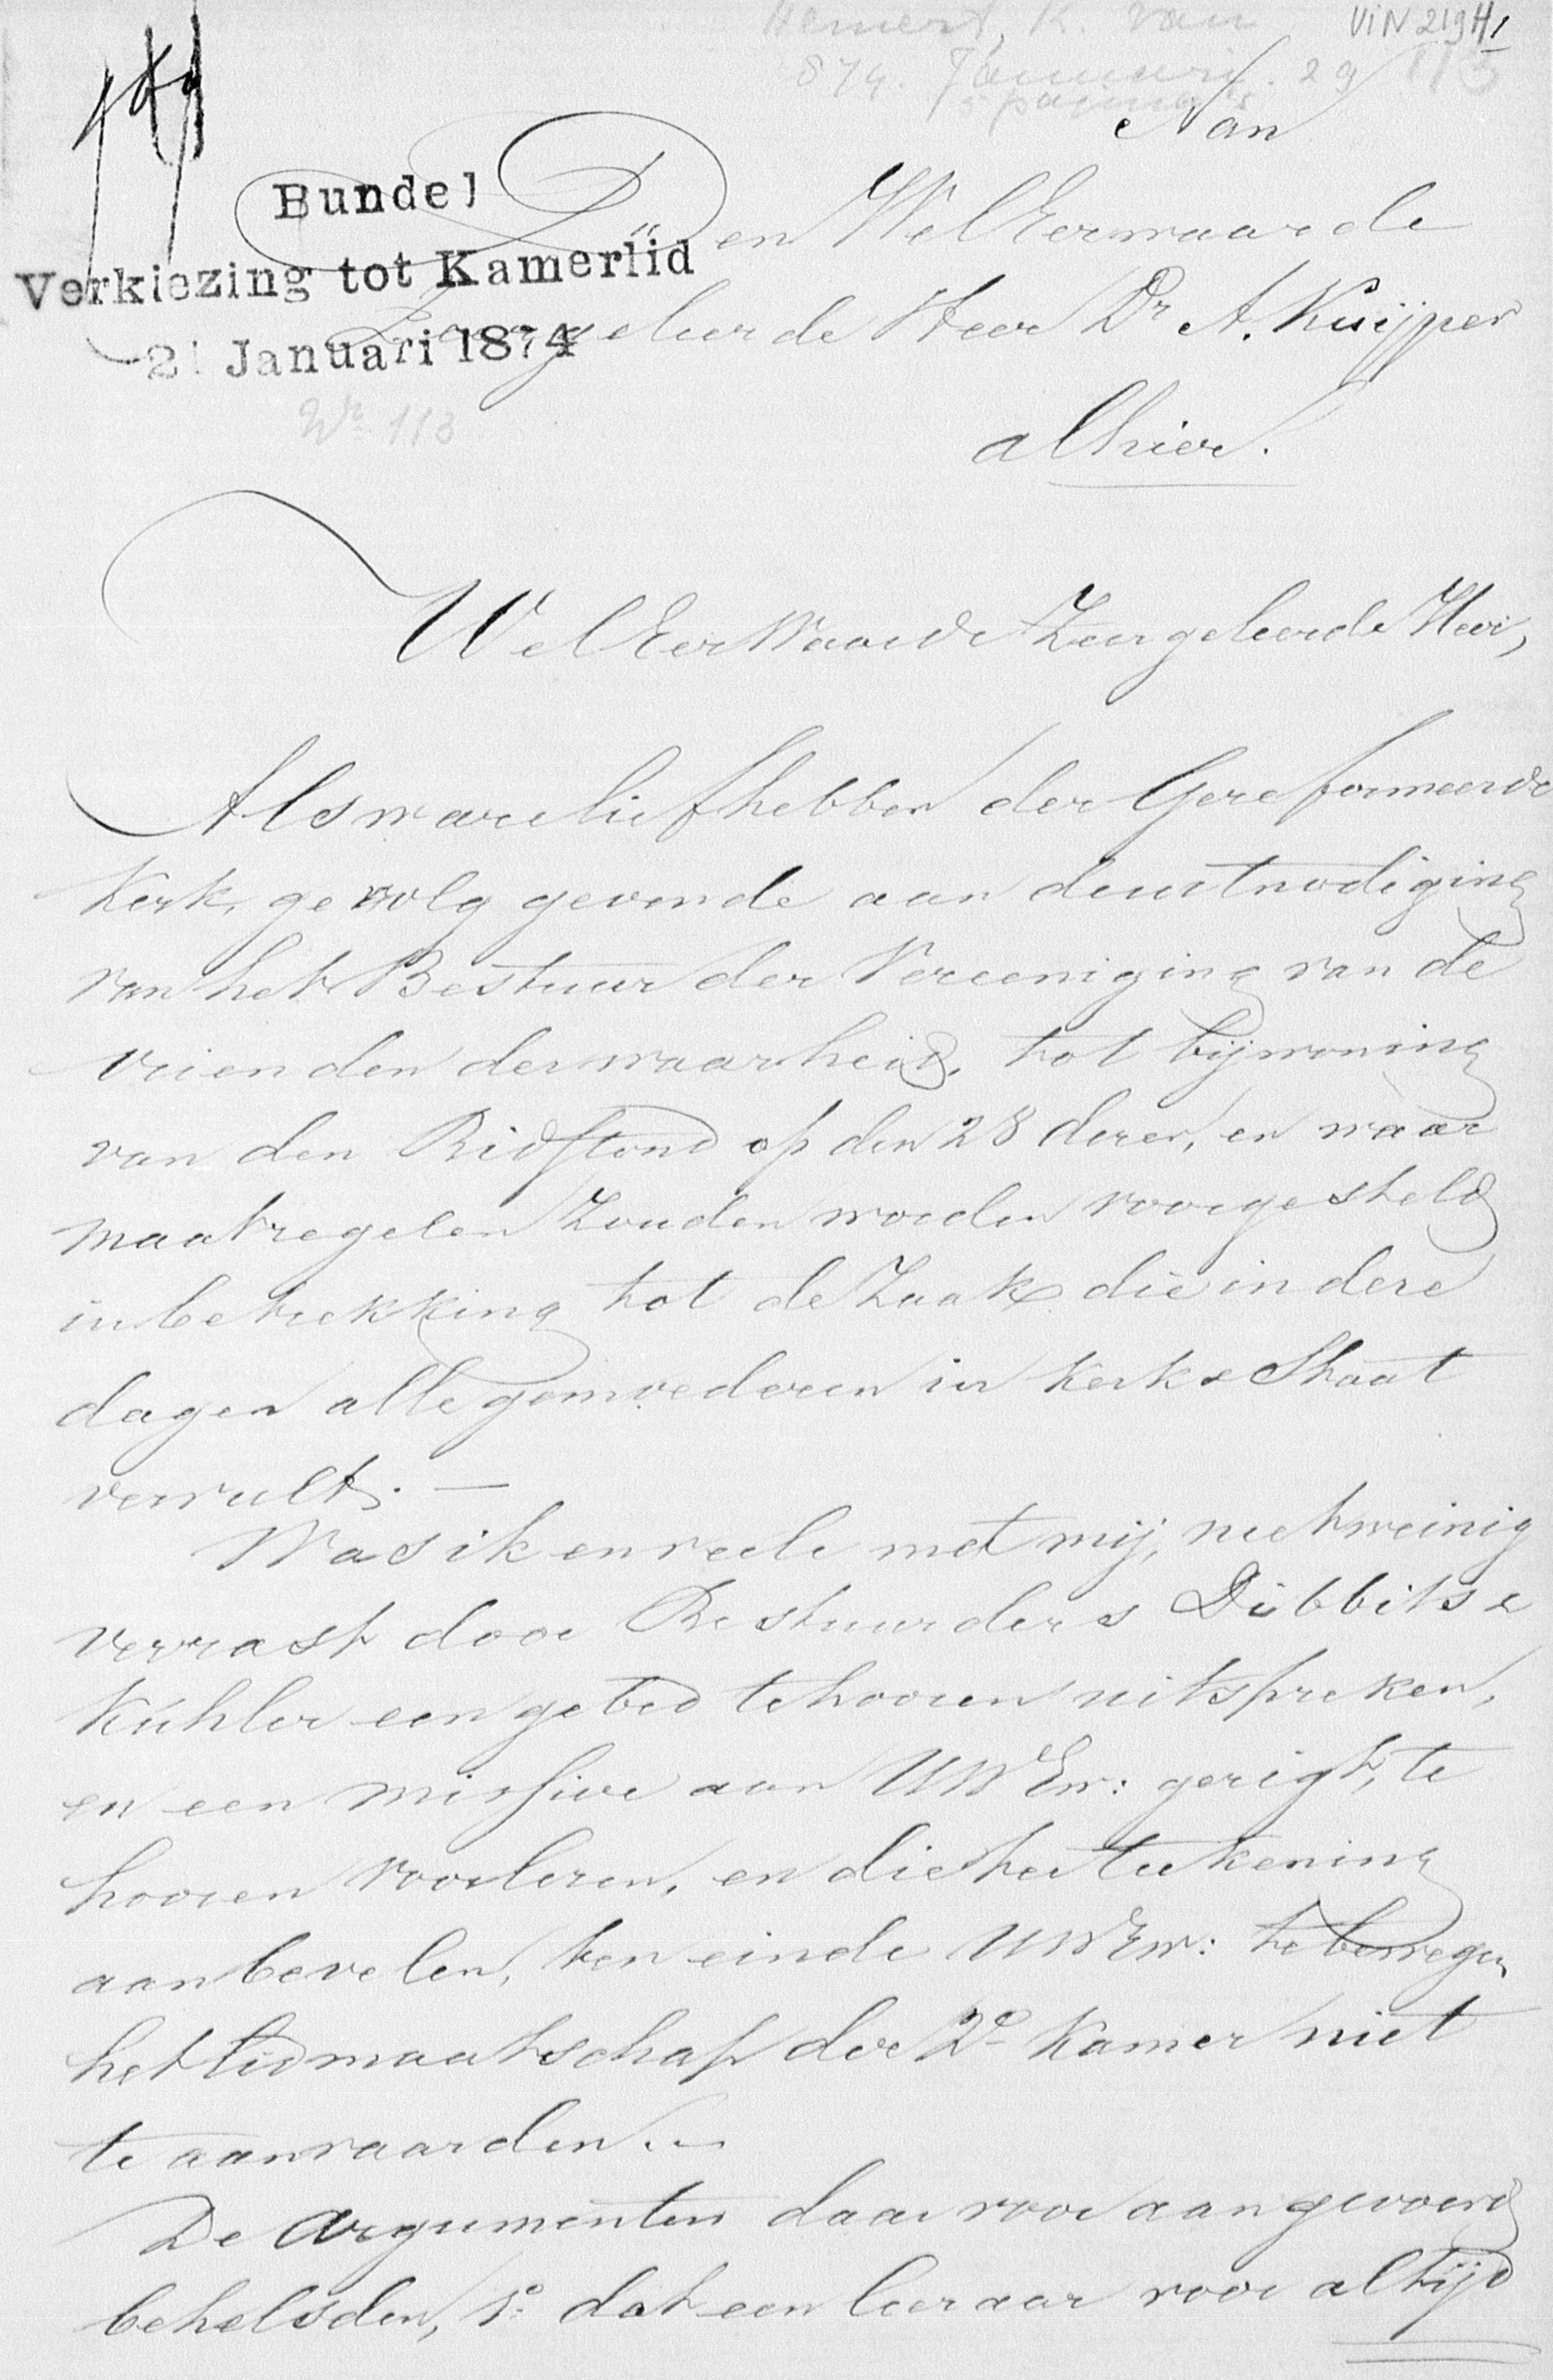 Hamert, K. van
VIN 219 H1
874 Januari 29
113
Aan
Bundel
Den WelEerwaarde
Verkiezing tot Kamerlid
Zeergeleerde Heer Dr A. Kuijper
21 Januari 1874
No 113
alhier.
WelEerWaarde Zeergeleerde Heer,
Als ware liefhebber der Gereformeerde
Kerk, gevolg gevende aan de uitnodiging
van het Bestuur der Vereeniging van de
vrienden der waarheid, tot bijwoning
van den Bidstond op den 28 dezer, en waar
maatregelen zouden worden voorgesteld
in betrekking tot de Zaak die in deze
dagen alle gemoederen in Kerk & Staat
vervult. —
Was ik en veele met mij, niet weinig
verrast door Bestuurders Dibbits &
Kühler een gebed te hooren uitspreken,
en een missive aan UWEw: gerigt, te
hooren voorlezen, en die ter teekening
aanbevelen, ten einde UWEw: te bewegen
het lidmaatschap der 2e Kamer niet
te aanvaarden. —
De Argumenten daar voor aangevoerd
behelsden, 1o dat een leeraar voor altijd